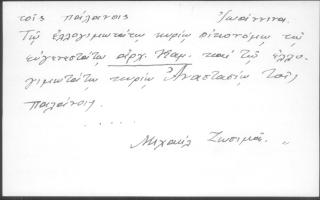 τοῖς παλάνοις Ἰωάννινα.
Τῷ ἐλλογιμωτάτῳ κυρίῳ οἰκονόμῳ τῷ
εὐγενεστάτῳ ἀρχ. καὶ τῷ ἐλλο-
γιμωτάτῳ κυρίῳ Ἀναστασίῳ τοῖς
παλάνοις.
.....
Μιχαὴλ Ζωσιμᾶ. "